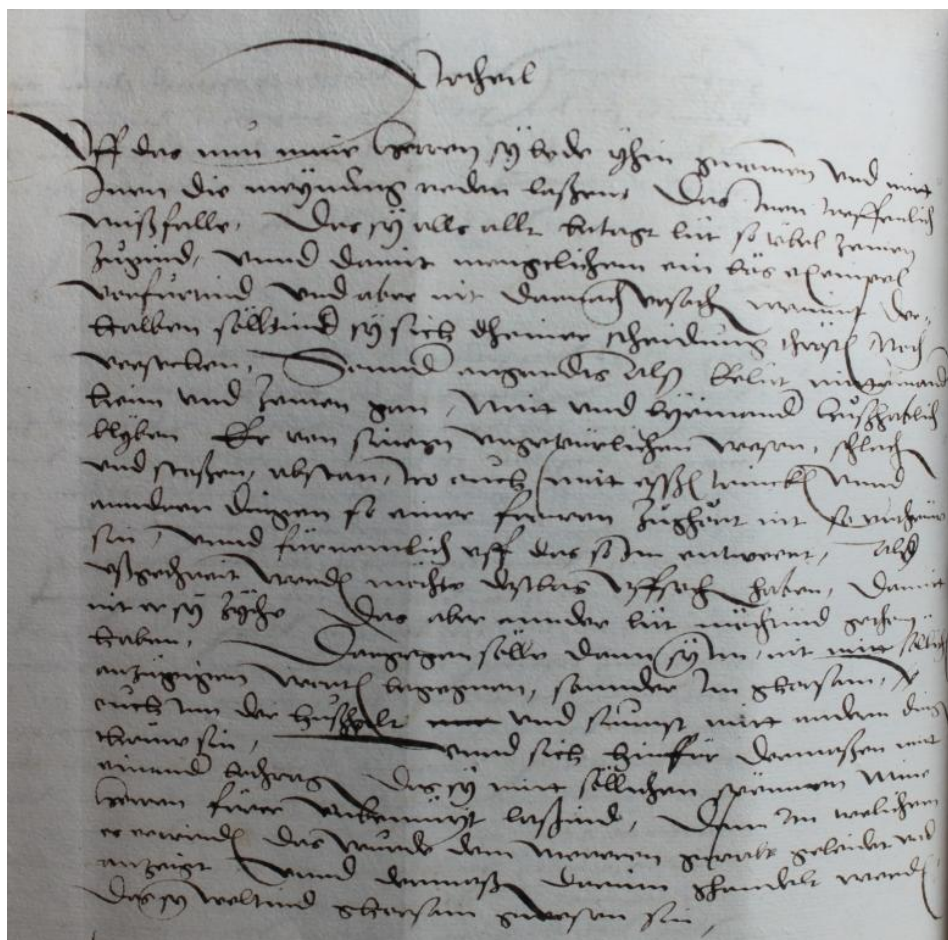 Urtheil
Uff das nun mine herren sy bede yhin gnomen und mit
Inen die meynung reden laßen, Das Inen treffenlich
mißfalle, Das sy alls allt betagt lüt so übel zemen
Zugind, unnd damit mengelichem ein bös exempel
vorfürtind und aber nit darnach ursach werind der
halben söltind sy sich dheiner scheidung noch
versechen, Sonnd angends als eelüt miteinand
heim und zemen gan, mit und byeinand hußhablich
blyben Er von sinem ungepürlichen wesen, schlach
und stoßen, abstan, Iro ouch mit essen trincken unnd
anndren dingen so einer frowen Zughört nit so
sin, unnd fürnemlich uff das so Im entwert, Als
ußgethreit werd möchte deßbas uffsech haben, damit
nit er sy zyche Das aber annder lüt möchtind gethan
haben, Dargegen sölle dann sy Im nit mit
anzügigen wort begegnen, sonnder Im ghorsam,
ouch Inn der hußhalt und sunnst mit andern ding
thrüw sin, unnd sich hinfür dermaßen mit
einand betrag Das sy mit söllichen spennen mine
herren fürer unbemüyt laßind, Dann In welichem
es erwinde Das wurde dem mereren gwalt geleidet und
anzeigt unnd dermaß darum ghandelt werd
Das sy weltind ghorsam gwesen sin,